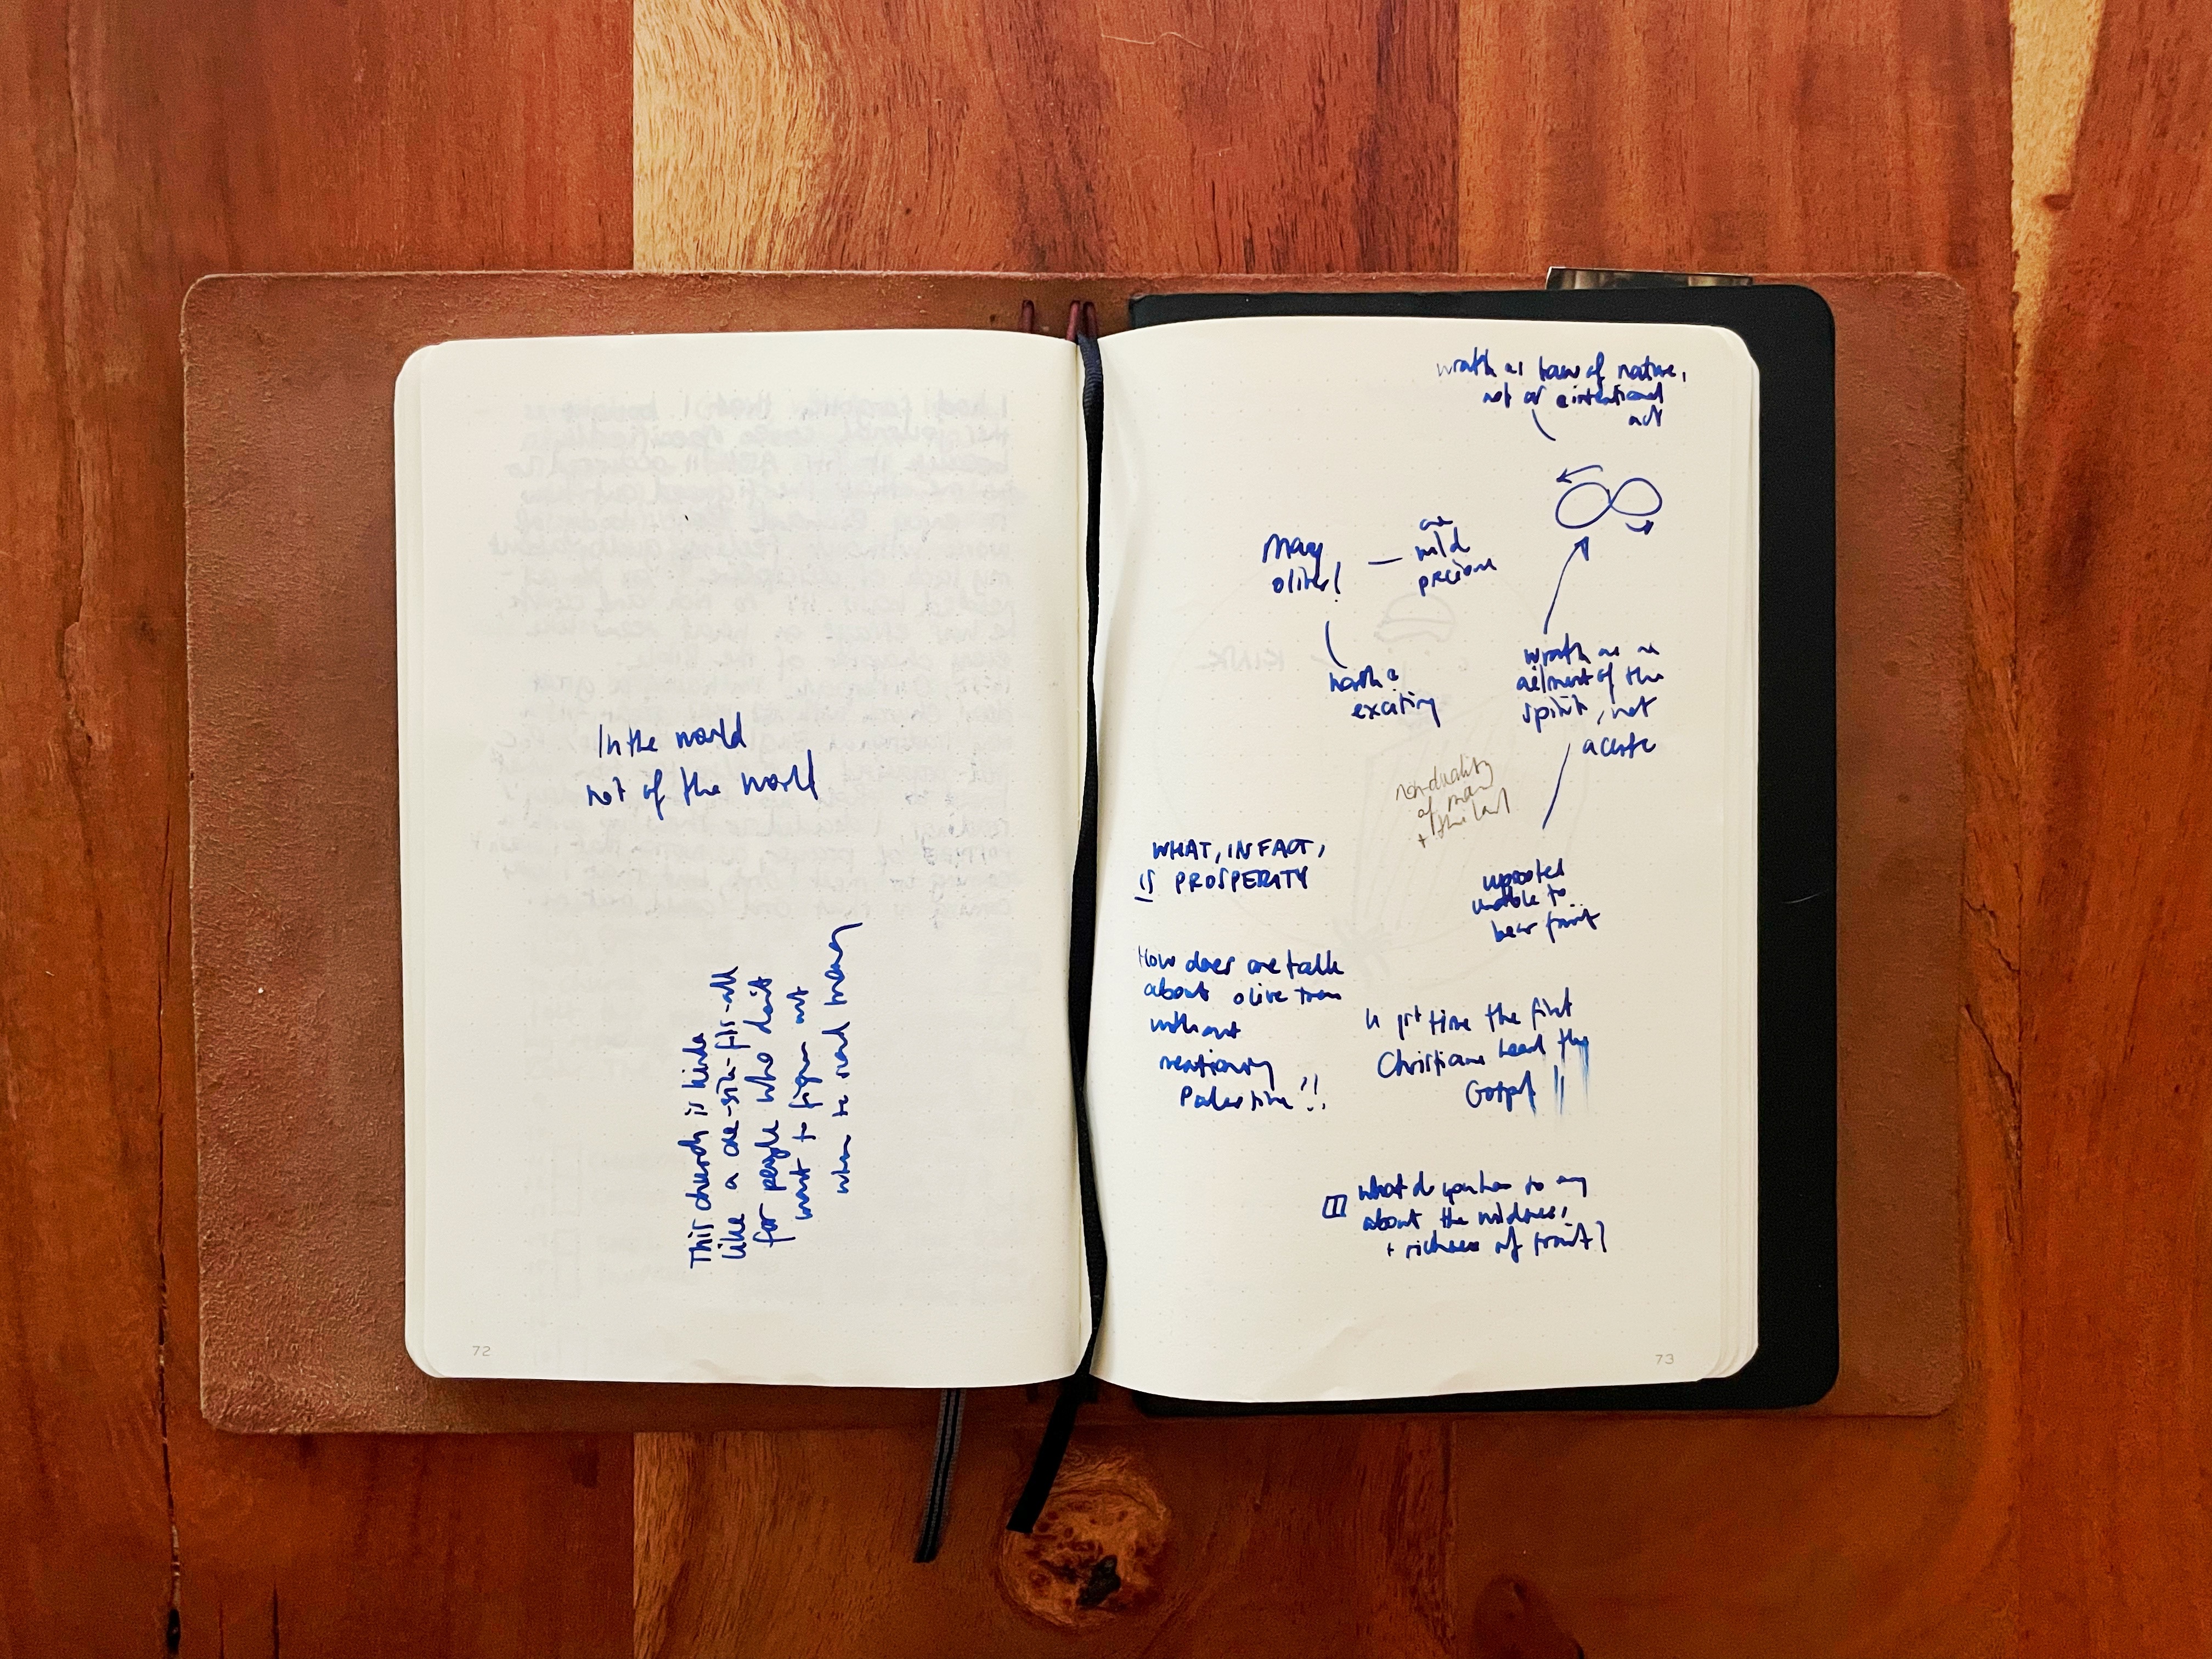 In the world
not of the world
This church is kinda
like a one-size-fits-all
for people who don't
want to figure out
when to read many
72
wrath as laws of nature,
not as intentional
act
many
olives!
are
wild
precious
exciting
wrath as an
ailment of the
spirit, not
a curse
non-duality
of man
+ the land
WHAT, IN FACT,
IS PROSPERITY
uprooted
unable to
bear fruit
How does one talk
about olive trees
without
mentioning
Palestine!!
time the first
Christians heard the
Gospel !!
what do you have to say
about the wildness,
+ richness of fruit?
73